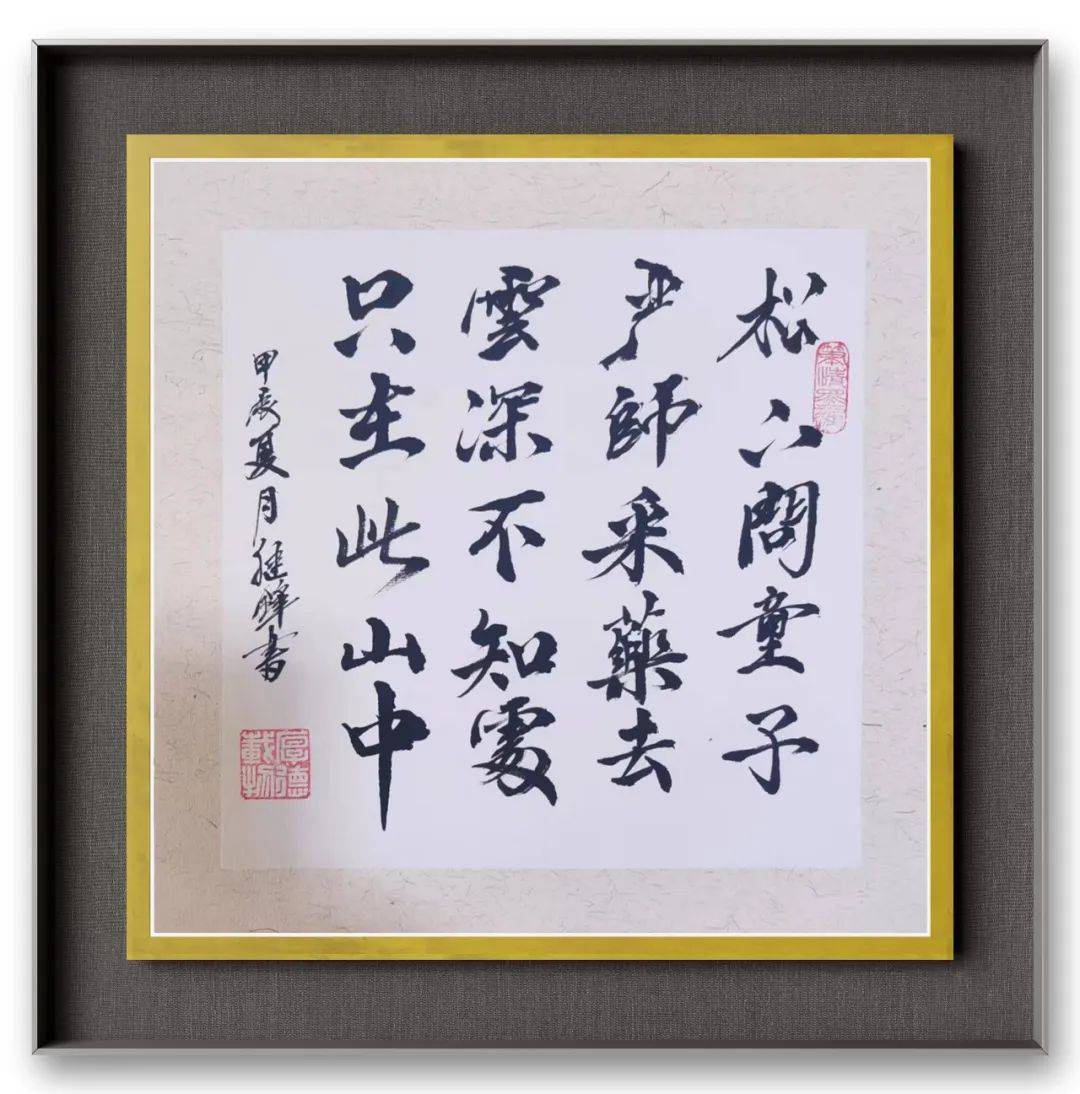 松下問童子
严師采藥去
雲深不知處
只在此山中
甲辰夏月继書
厚德載物